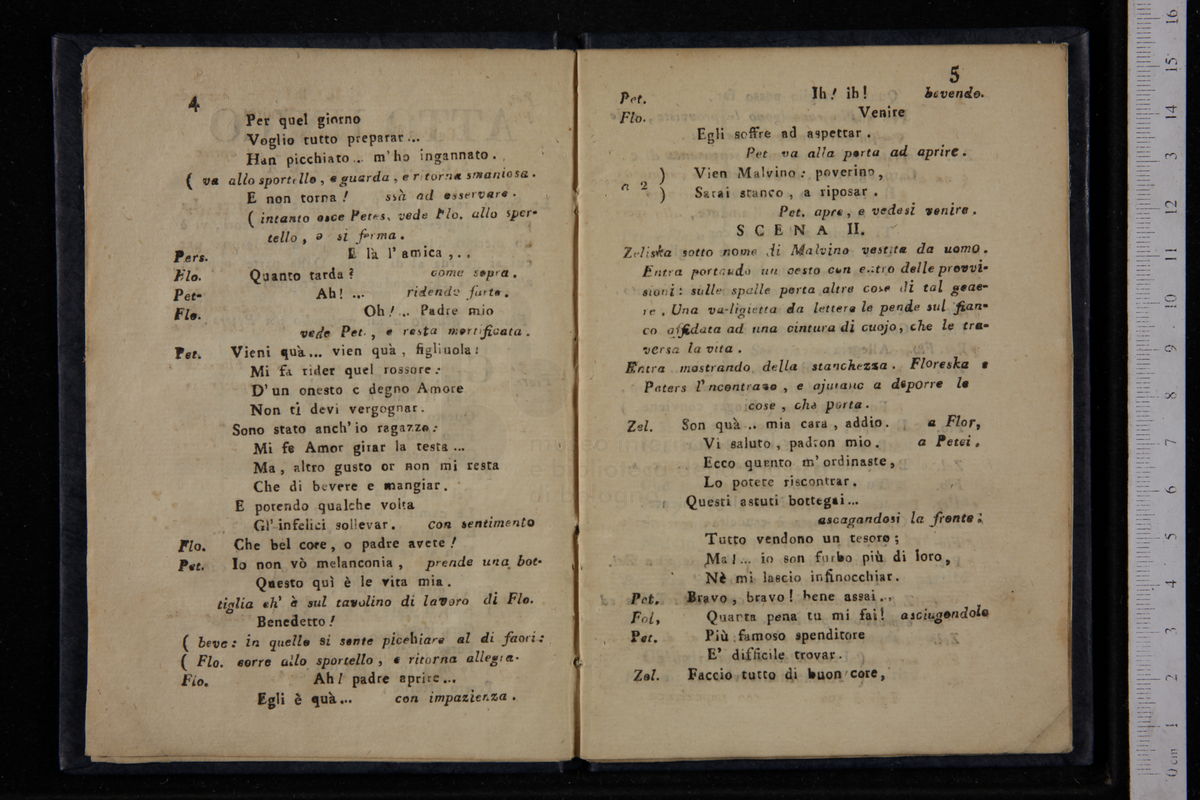 4
Per quel giorno
Voglio tutto preparar...
Han picchiato... m' ho ingannato.
( va allo sportello, e guarda, e ritorna smaniosa.
E non torna! ssà ad osservare.
( intanto esce Peters, vede Flo. allo sper-
tello, e si ferma.
Pers. E là l' amica,..
Flo. Quanto tarda? come sopra.
Pet- Ah! ... ridendo forte.
Flo. Oh! .. Padre mio
vede Pet., e resta mortificata.
Pet. Vieni quà... vien quà, figliuola:
Mi fa rider quel rossore:
D' un onesto e degno Amore
Non ti devi vergognar.
Sono stato anch' io ragazzo:
Mi fe Amor girar la testa ...
Ma, altro gusto or non mi resta
Che di bevere e mangiar.
E potendo qualche volta
Gl' infelici sollevar. con sentimento
Flo. Che bel core, o padre avete!
Pet. Io non vò melanconia, prende una bot-
Questo quì è le vita mia.
tiglia ch' è sul tavolino di lavoro di Flo.
Benedetto!
( beve: in quello si sente picchiare al di faori:
( Flo. corre allo sportello, e ritorna allegra.
Flo. Ah! padre aprite...
Egli è quà... con impazienza.
5
Pet. Ih! ih! bevendo.
Flo. Venire
Egli soffre ad aspettar.
Pet va alla porta ad aprire.
a 2 ) Vien Malvino: poverino,
) Sarai stanco, a riposar.
Pet. apre, e vedesi venire.
SCENA II.
Zeliska sotto nome di Malvino vestita da uomo.
Entra portando un cesto con entro delle provvi-
sioni: sulle spalle porta altre cose di tal gene-
re. Una va-ligietta da lettere le pende sul fian-
co affidata ad una cintura di cuojo, che le tra-
versa la vita.
Entra mostrando della stanchezza. Floreska e
Peters l' ncontrano, e ajutano a deporre le
cose, che porta.
Zel. Son quà .. mia cara, addio. a Flor,
Vi saluto, padron mio. a Petei.
Ecco quento m' ordinaste,
Lo potete riscontrar.
Questi astuti bottegai...
ascagandosi la fronte:
Tutto vendono un tesoro;
Ma!... io son furbo più di loro,
Nè mi lascio infinocchiar.
Pet. Bravo, bravo! bene assai...
Fol, Quanta pena tu mi fai! asciugondolo
Pet. Più famoso spenditore
E' difficile trovar.
Zel. Faccio tutto di buon core,